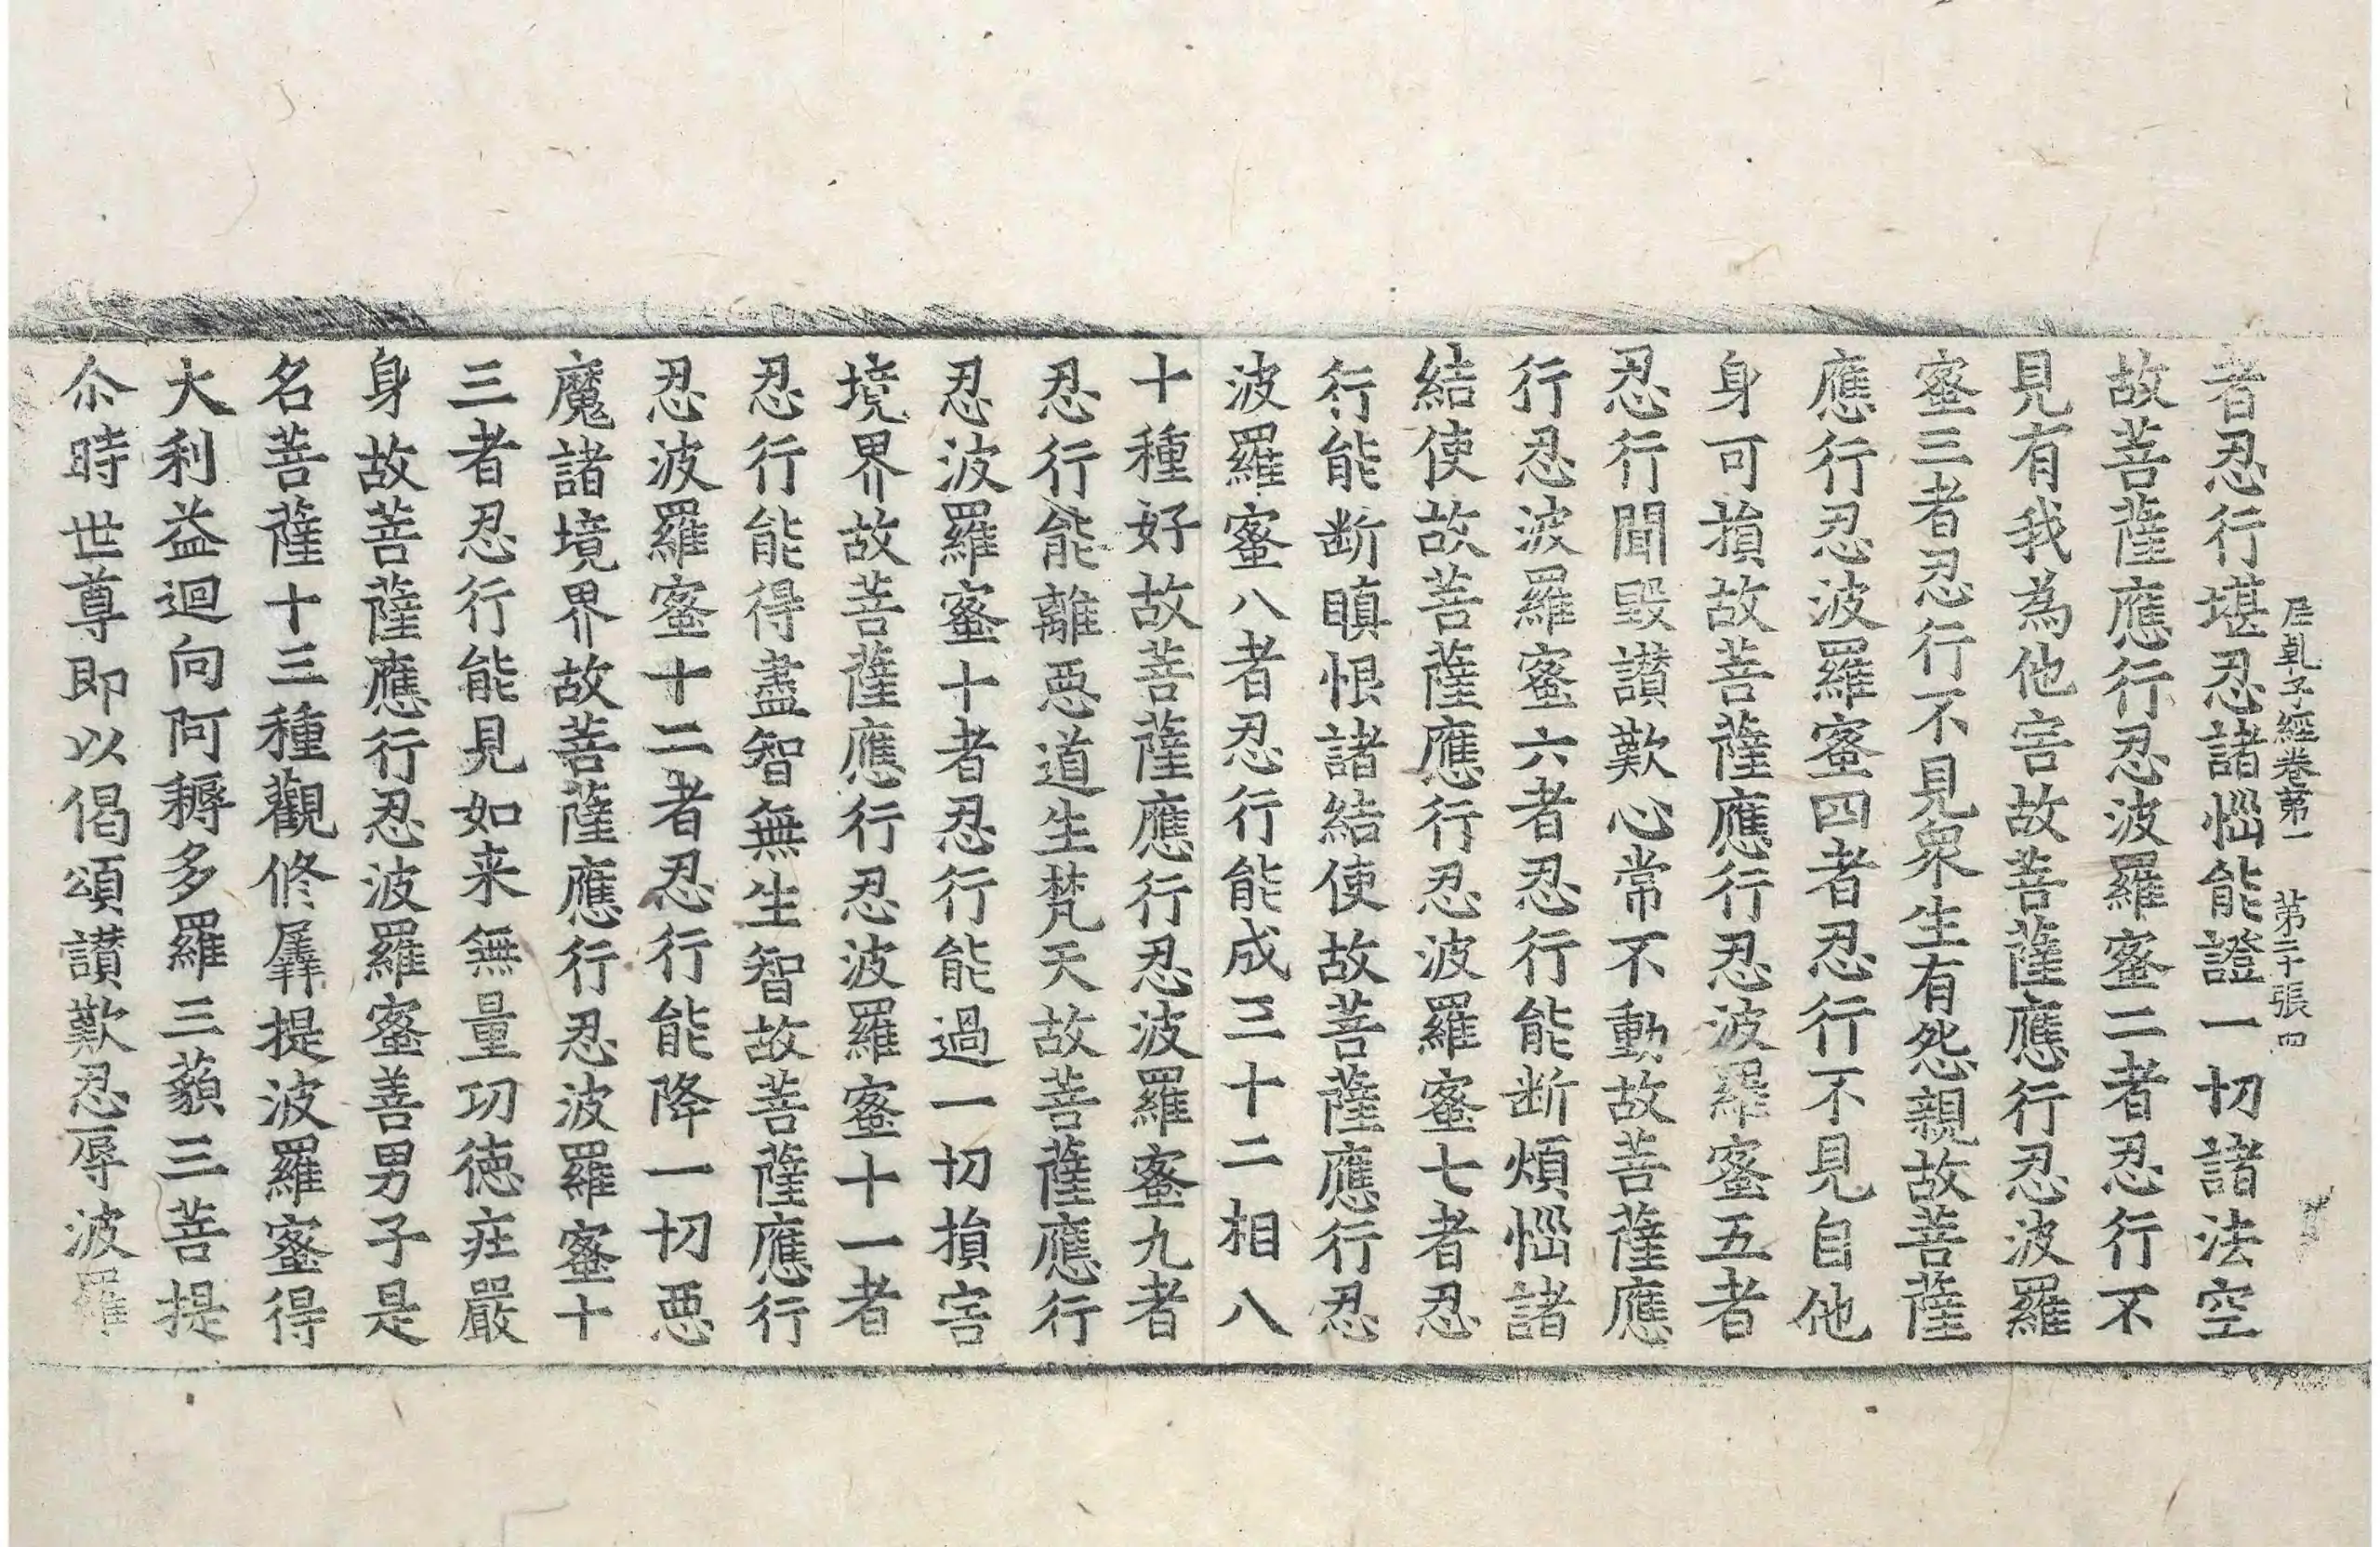 尼乹子經卷苐一　苐二十張　四
者忍行堪忍諸惱能證一切諸法空
故菩薩應行忍波羅蜜二者忍行不
見有我為他害故菩薩應行忍波羅
蜜三者忍行不見衆生有怨親故菩薩
應行忍波羅蜜四者忍行不見自他
身可損故菩薩應行忍波羅蜜五者
忍行聞毀讃歎心常不動故菩薩應
行忍波羅蜜六者忍行能断煩惱諸
結使故菩薩應行忍波羅蜜七者忍
行能断瞋恨諸結使故菩薩應行忍
波羅蜜八者忍行能成三十二相八
十種好故菩薩應行忍波羅蜜九者
忍行能離惡道生梵天故菩薩應行
忍波羅蜜十者忍行能過一切損害
境界故菩薩應行忍波羅蜜十一者
忍行能得盡智無生智故菩薩應行
忍波羅蜜十二者忍行能降一切惡
魔諸境界故菩薩應行忍波羅蜜十
三者忍行能見如来無量功徳莊嚴
身故菩薩應行忍波羅蜜善男子是
名菩薩十三種觀修羼提波羅蜜得
大利益迴向阿耨多羅三藐三菩提
尒時世尊即以偈頌讃歎忍辱波羅